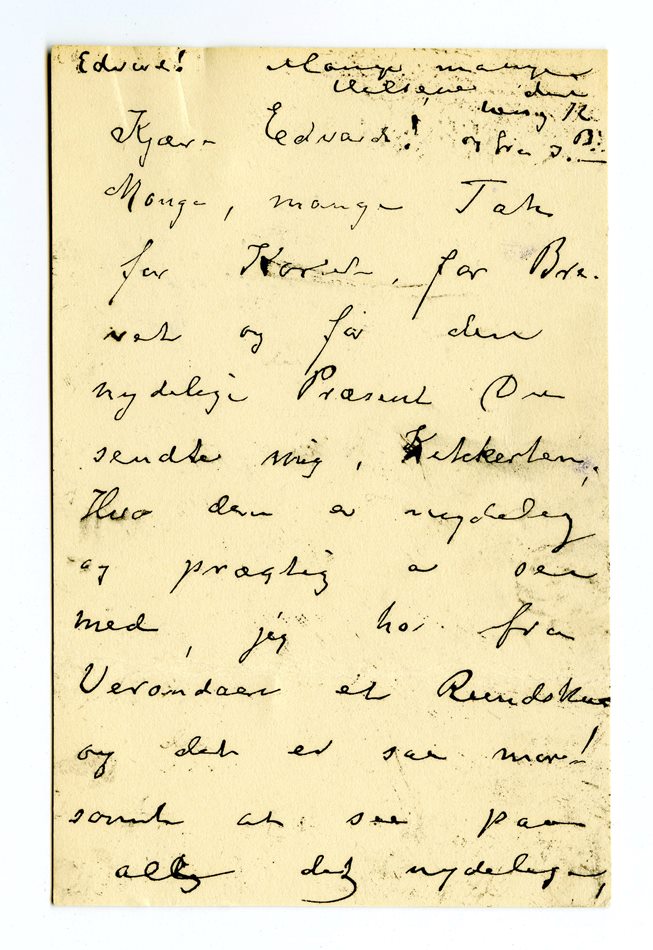 Edvard! Mange mange
Hilsener den
og fra
Kjære Edvard!
Mange, mange Tak
for Kortet, for Bre-
vet og for den
nydelige Præsent Du
sendte mig, Kikkerten,
Hvor den er nydelig
og prægtig a see
med, jeg har fra
Verandaen et Rundskue
og det er saa mor-
somt at see paa
alle det nydelige,